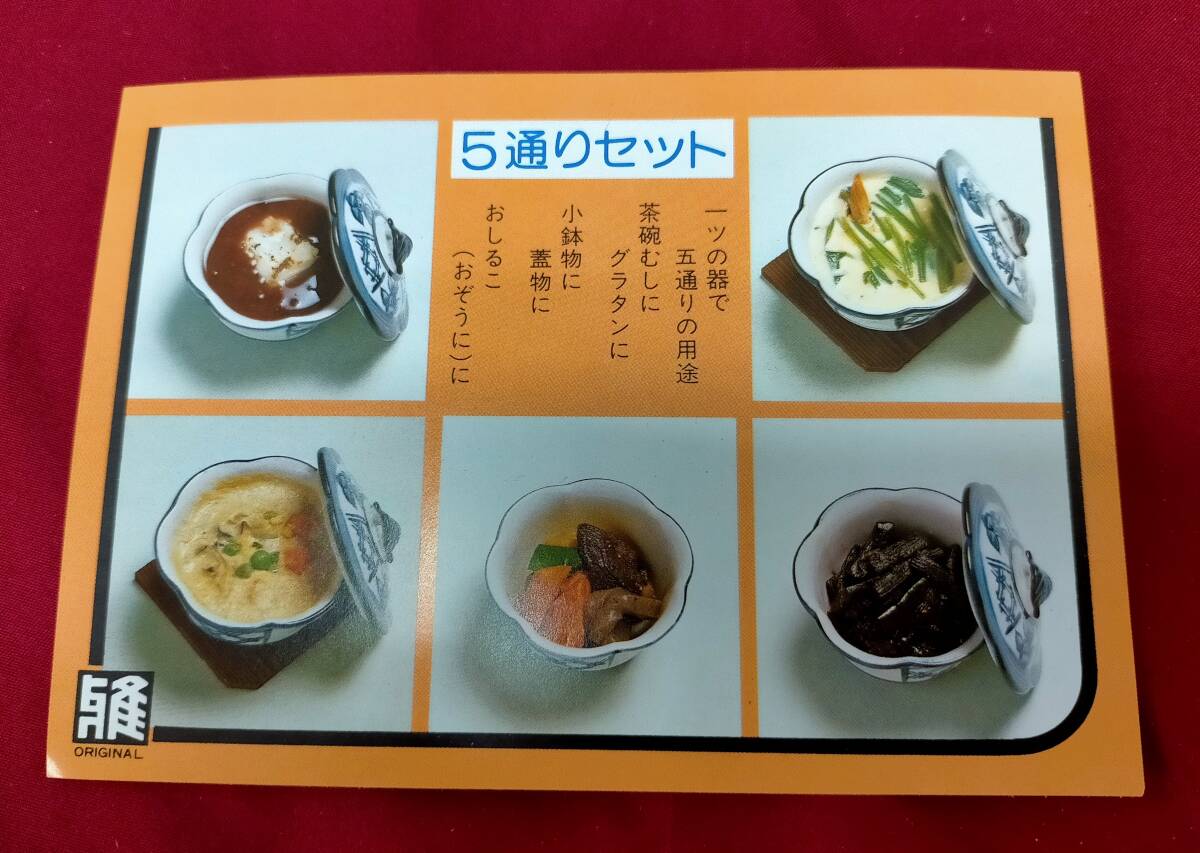 5通りセット
一ツの器で
五通りの用途
茶碗むしに
グラタンに
小鉢物に
蓋物に
おしるこ
(おぞうに)に
ORIGINAL